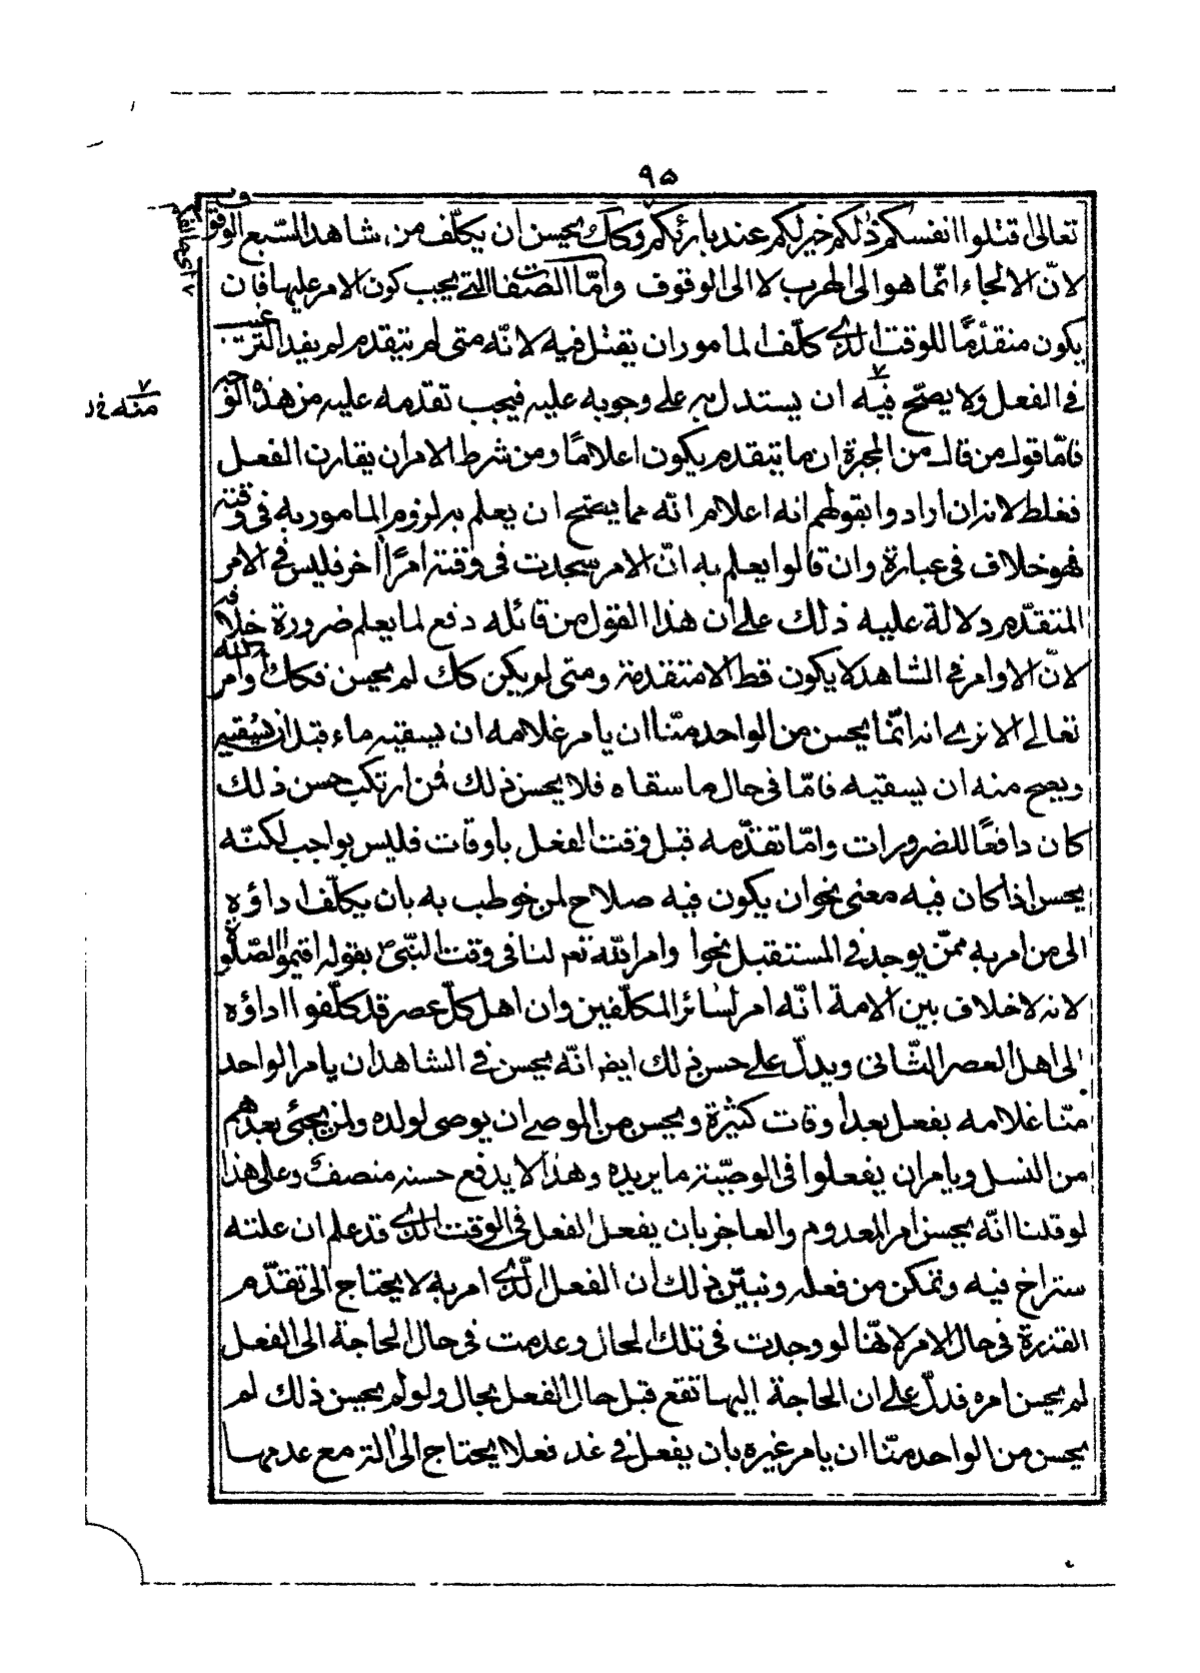 ٩٥
تعالى اقتلوا انفسكم ذلكم خير لكم عند بارئكم وكك يحسن ان يكلّف من شاهد السّبع الوقوف
لانّ الالجاء انّما هو الى الهرب لا الى الوقوف وامّا الصفات التي يجب كون الامر عليها فان
يكون متقدّمًا للوقت الذي كلّف المامور ان يفعل فيه لانّه متى لم يتقدم لم يفد الترغيب
في الفعل ولا يصحّ فيه ان يستدل به على وجوبه عليه فيجب تقدمه عليه من هذه الوجه
منه خ ل
فامّا قول من قال من المجبرة ان ما يتقدم يكون اعلامًا ومن شرط الامر ان يقارن الفعل
فغلط لانه ان ارادوا بقولهم انه اعلام انه مما يصحّ ان يعلم به لزوم المامور به في وقته
فهو خلاف في عبارة وان قالوا يعلم به انّ الامر سيحدث في وقته امرًا آخر فليس في الامر
المتقدّم دلالة عليه ذلك على ان هذا القول من قائله دفع لما يعلم ضرورة خلافه
لانّ الاوامر في الشاهد لا يكون قط الا متقدمة ومتى لم يكن كك لم يحسن فكك اوامر الله
تعالى الا ترى انه انّما يحسن من الواحد منّا ان يامر غلامه ان يسقيه ماء قبل ان يسقيه
ويصح منه ان يسقيه فامّا في حال ما سقاه فلا يحسن ذلك فمن ارتكب حسن ذلك
كان دافعًا للضرورات وامّا تقدّمه قبل وقت الفعل باوقات فليس بواجب لكنّه
يحسن اذا كان فيه معنى نحو ان يكون فيه صلاح لمن خوطب به بان يكلّف اداؤه
الى من امر به ممّن يوجد في المستقبل نحو اوامر الله تعم لنا في وقت النبيّ بقوله اقيموا الصّلوة
لانه لا خلاف بين الامة انّه امر لسائر المكلّفين وان اهل كلّ عصر قد كلّفوا اداؤه
الى اهل العصر الثّاني ويدلّ على حسن ذلك ايضا انّه يحسن في الشاهد ان يامر الواحد
منّا غلامه بفعل بعد اوقات كثيرة ويحسن من الموصي ان يوصي لولده ولمن يجئ بعدهم
من النسل ويامر ان يفعلوا في الوصيّة ما يريده وهذا لا يدفع حسنه منصف وعلى هذا
لو قلنا انّه يحسن امر المعدوم والعاجز بان يفعل الفعل في الوقت الذي قد علم ان علته
ستزاح فيه وتمكن من فعله ونبيّن ذلك ان الفعل الّذي امر به لا يحتاج الى تقدّم
القدرة في حال الامر لانّها لو وجدت في تلك الحال وعدمت في حال الحاجة الى الفعل
لم يحسن امره فدلّ على ان الحاجة اليها تقع قبل حال الفعل بحال ولو لم يحسن ذلك لم
يحسن من الواحد منّا ان يامر غيره بان يفعل في غد فعلا يحتاج الى آلة مع عدمها